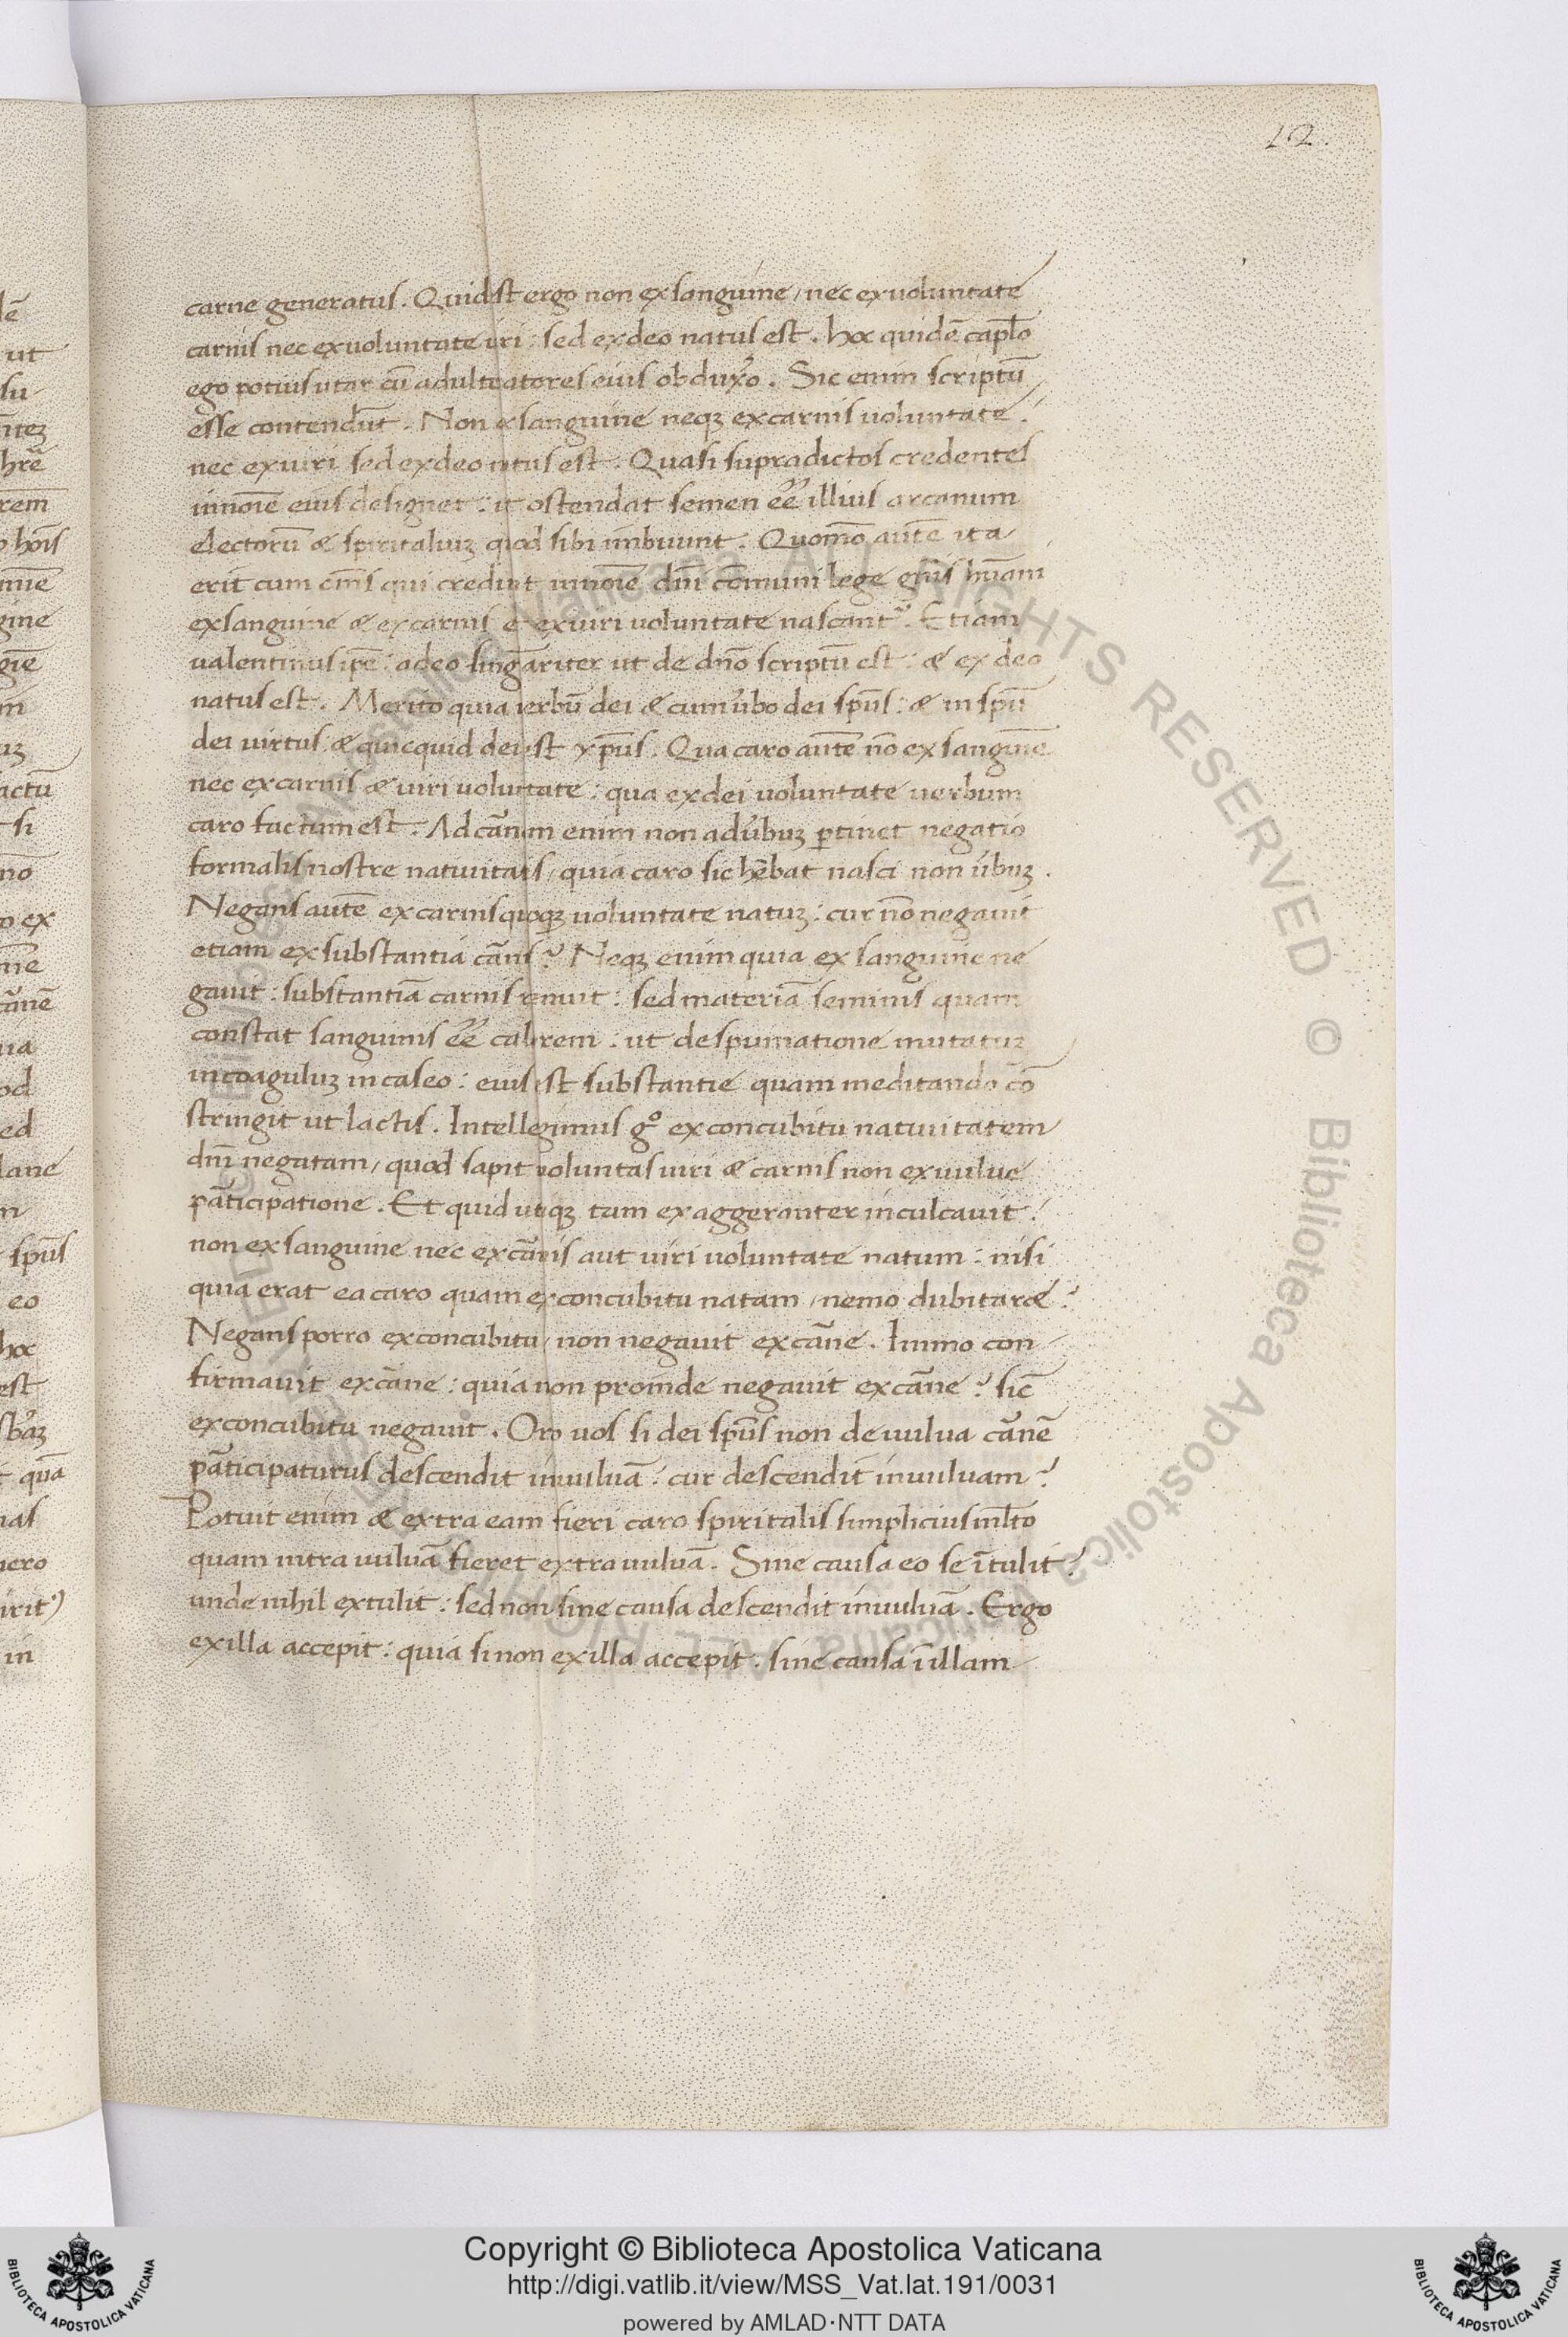 12.
carne generatus. Quid est ergo non ex sanguine, nec ex voluntate
carnis nec ex voluntate viri: sed ex deo natus est. hoc quidē capl̄o
ego potius utar cū adulteratores eius obduxero. Sic enim scriptū
esse contendūt. Non ex sanguine neqꝫ ex carnis voluntate:
nec ex viri sed ex deo natus est. Quasi supradictos credentes
in noīe eius designet: ut ostendat semen eē illius arcanum
electorū & spiritaliuꝫ quod sibi imbuunt. Quomō autē ita
erit cum om̄s qui credunt in noīe dn̄i com̄uni lege gn̄is hūam
ex sanguine & ex carnis et ex viri voluntate nascant᷑? Etiam
ualentinus ip̄e: adeo singr̄ariter ut de dn̄o scriptū est: & ex deo
natus est. Merito quia verbū dei & cum v̄bo dei sp̄us: & in sp̄u
dei virtus & quicquid dei est xp̄us. Qua caro autē nō ex sanguine
nec ex carnis & viri voluntate: qua ex dei voluntate verbum
caro factum est. Ad carnem enim non ad v̄buꝫ ꝑtinet negatio
formalis nostre nativitatis, quia caro sic hēbat nasci non v̄buꝫ.
Negans autē ex carnis quoqꝫ voluntate natuꝫ: cur nō negavit
etiam ex substantia cānis? Neqꝫ enim quia ex sanguine ne
gavit: substantiā carnis renuit: sed materiā seminis quam
constat sanguinis eē calorem: ut despumatione mutatuꝫ
in coaguluꝫ in caseo: eius est substantie quam meditando cō
stringit ut lactis. Intellegimus gͦ ex concubitu nativitatem
dn̄i negatam, quod sapit voluntas viri & carnis non ex vulve
pāticipatione. Et quid utiqꝫ tam exaggeranter inculcavit?
non ex sanguine nec ex cānis aut viri voluntate natum: nisi
quia erat ea caro quam ex concubitu natam, nemo dubitar&?
Negans porro ex concubitu, non negavit ex cāne. Immo con
firmavit ex cāne: quia non proinde negavit ex cāne? sic̄
ex concubitu negavit. Oro vos si dei sp̄us non de vulva cānē
pāticipaturus descendit in vulvā? cur descendit in vulvam?
Potuit enim & extra eam fieri caro spiritalis simplicius ml̄to
quam intra vulvā fieret extra vulvā. Sine causa eo se ītulit?
unde nihil extulit: sed non sine causa descendit in vulvā. Ergo
ex illa accepit: quia si non ex illa accepit. sine causa ī illam
Copyright © Biblioteca Apostolica Vaticana
http://digi.vatlib.it/view/MSS_Vat.lat.191/0031
powered by AMLAD·NTT DATA